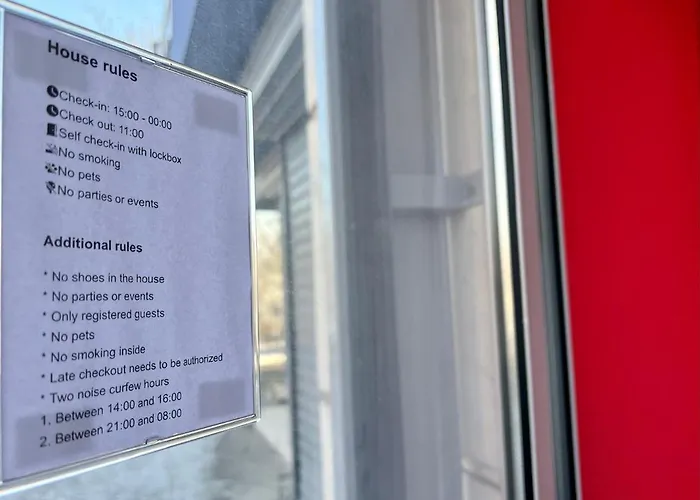 House rules
Check-in: 15:00 - 00:00
Check out: 11:00
Self check-in with lockbox
No smoking
No pets
No parties or events
Additional rules
* No shoes in the house
* No parties or events
* Only registered guests
* No pets
* No smoking inside
* Late checkout needs to be authorized
* Two noise curfew hours
1. Between 14:00 and 16:00
2. Between 21:00 and 08:00